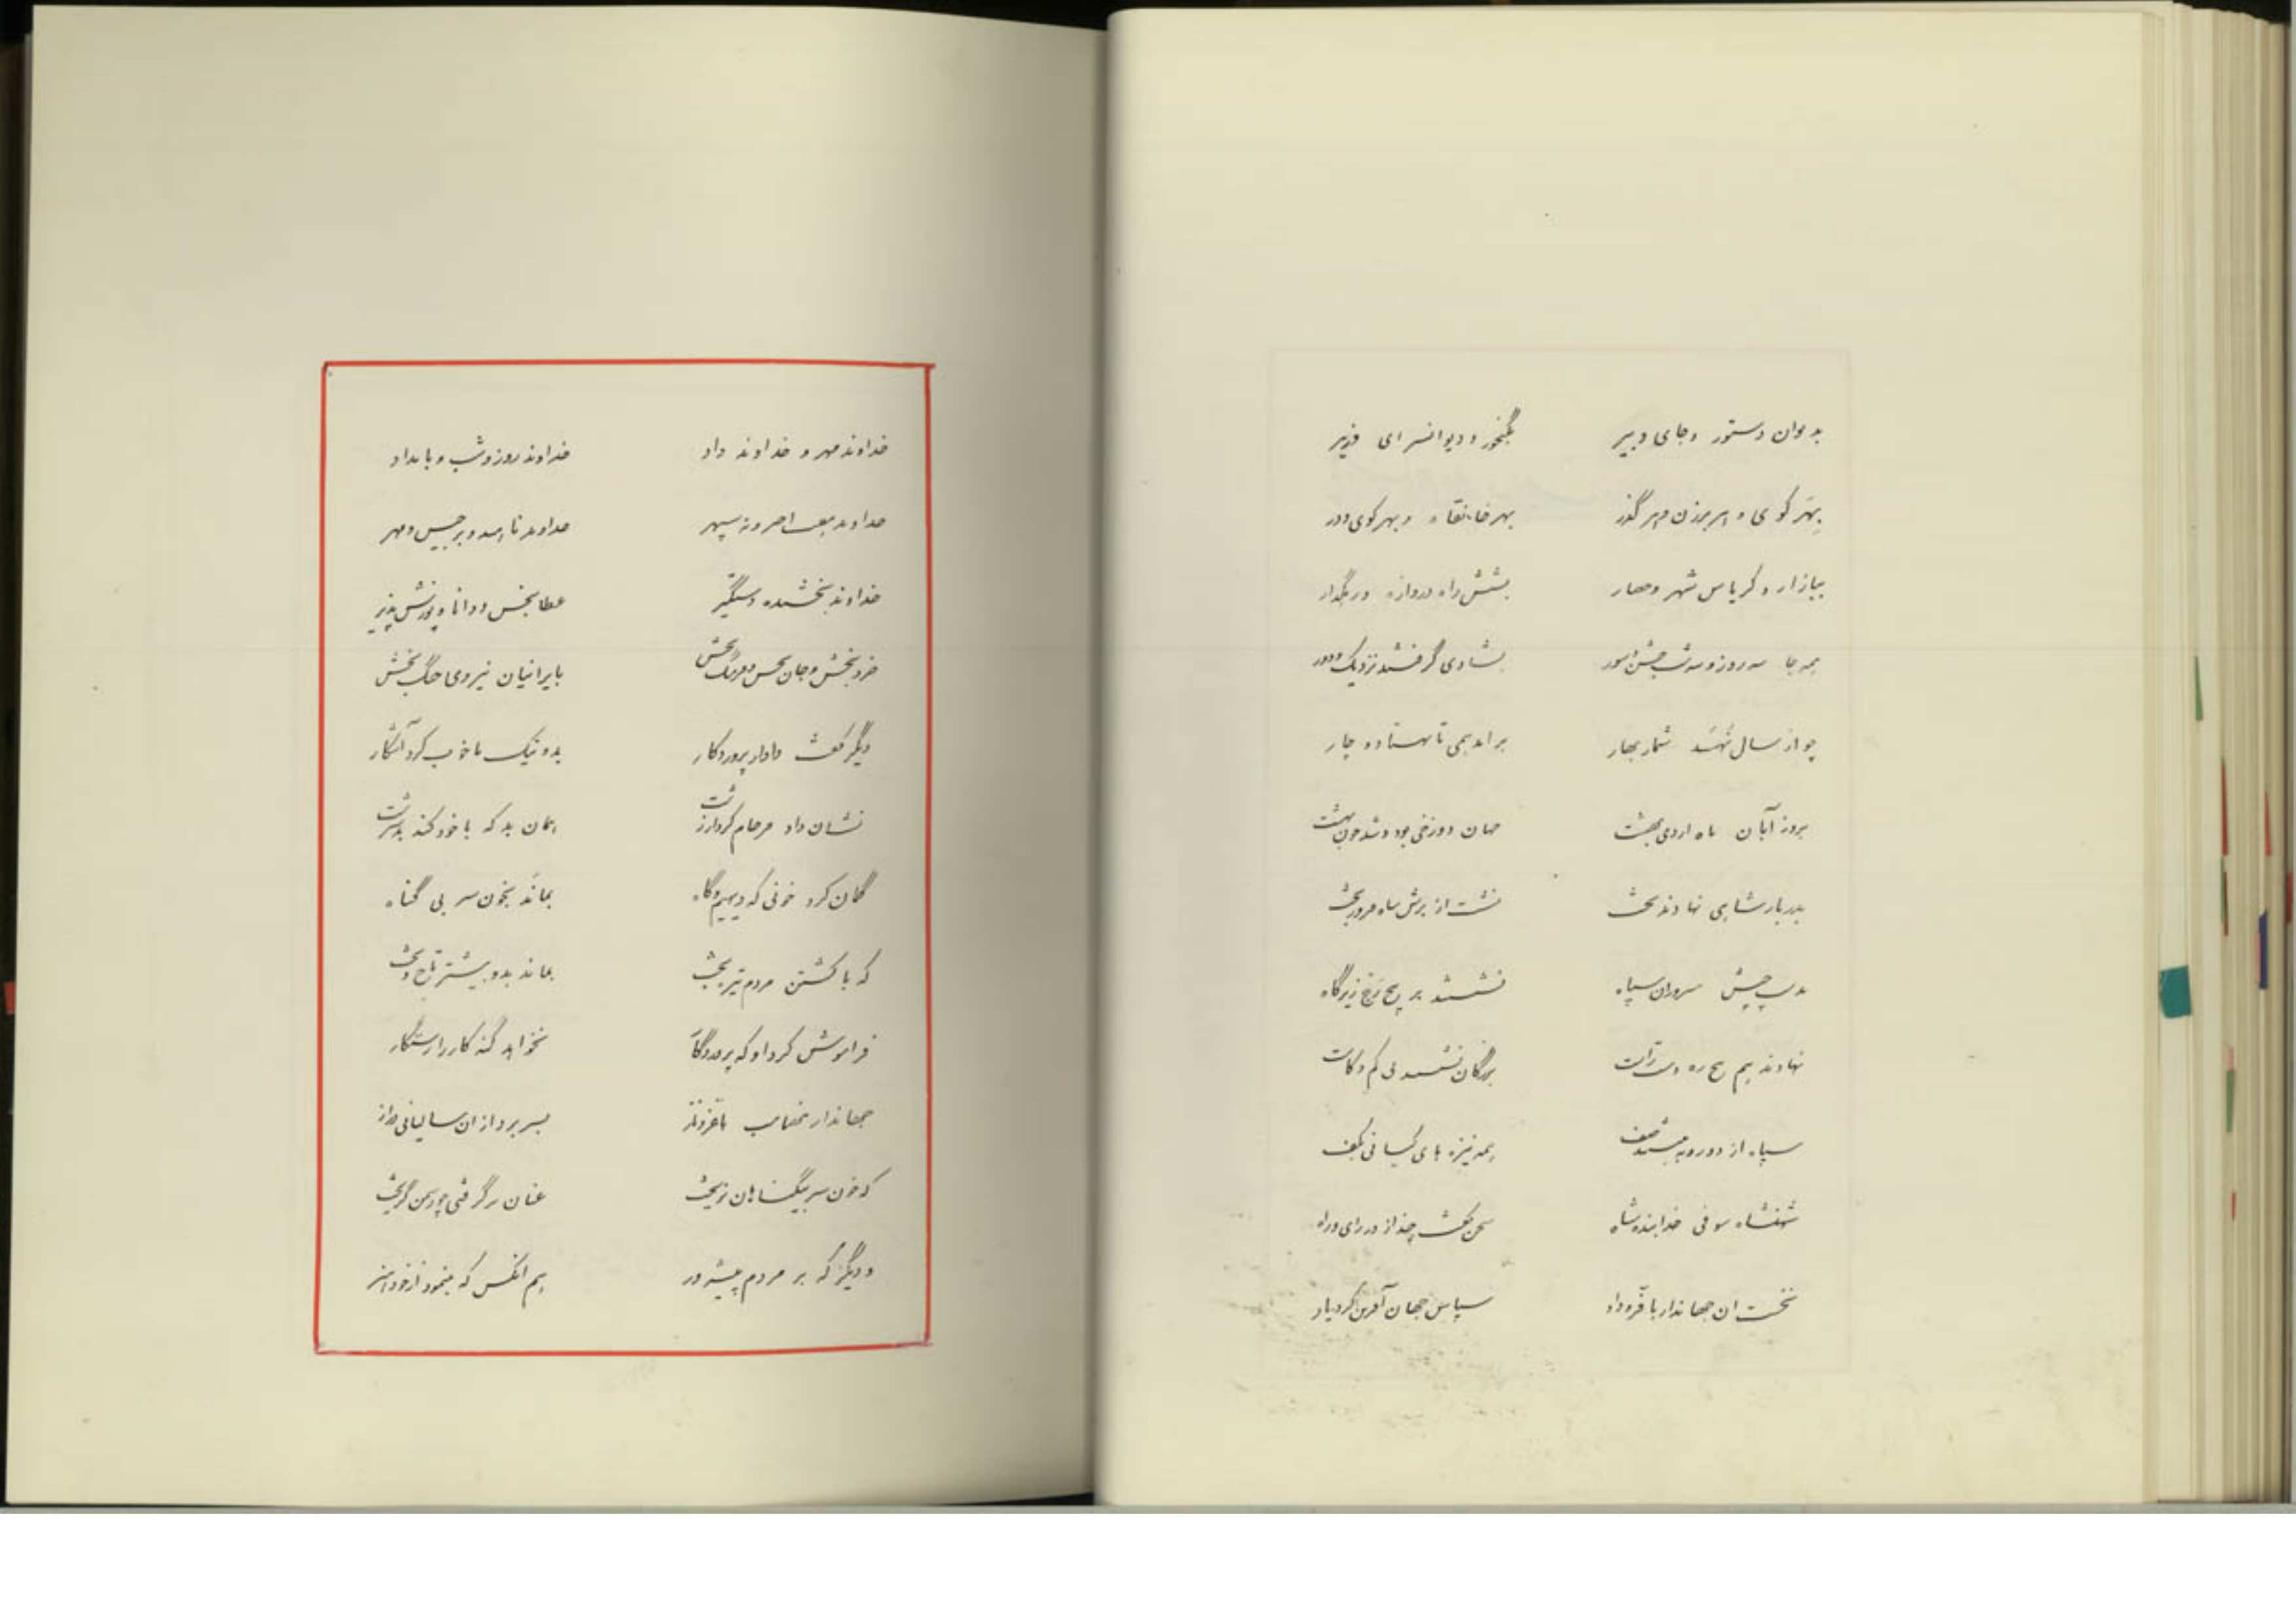 بدیوان دستور و جای دبیر گنجور و دیوانسرای وزیر
بهر کوی و هر برزن و هر گذر بهر خانقاه و بهر کوی و در
ببازار و کریاس شهر و حصار بشش راه دروازه و رهگذار
همه جا سه روز و سه شب جشن و سور بشادی گرفتند نزدیک و دور
چو از سال نهصد شمار بهار برآمد همی تا بهشتاد و چار
بروز آبان ماه اردی بهشت جهان دوزخی بود و شد چون بهشت
بدربار شاهی نهادند تخت نشست از برش شاه فیروز بخت
چپش سروران سپاه نشستند بر پنج زیرگاه
نهادند هم پنج ره دست راست بزرگان نشستند بی کم و کاست
سپاه از دو رویه صف همه نیزه های کیانی بکف
شهنشاه صوفی خدابنده شاه سخن گفت چند از در رای و راه
نخست آن جهاندار با فر و داد سپاس جهان آفرین کرد یاد
خداوند مهر و خداوند داد خداوند روز و شب و بامداد
خداوند هفت اختر و نه سپهر خداوند ناهید و برجیس و مهر
خداوند بخشنده دستگیر عطا بخش و دانا و پوزش پذیر
خرد بخش و جان بخش و فرهنگ بخش بایرانیان نیروی جنگ بخش
دیگر گفت دادار پروردگار بد و نیک ما خوب کرد آشکار
نشان داد فرجام کردار زشت همان بد که با خود کند بدسرشت
گمان کرد خونی که دیهیم و گاه بماند بخون سر بی گناه
که با کشتن مردم تیره بخت بماند بدو بیشتر تاج و تخت
فراموش کرد او که پروردگار نخواهد گنه کار را رستگار
جهاندار با فر و ناز بسر برد از آن سالیانی دراز
که خون سر بیگناهان نریخت عنان برگرفتی چو دشمن گریخت
و دیگر که بر مردم پیشه ور هم آنکس که بنمود از خود هنر